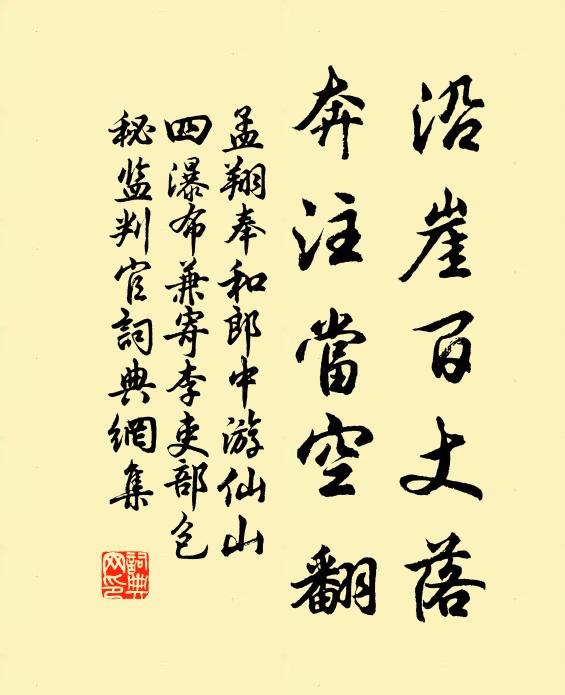 沿崖百丈落
奔注當空翻
孟翔奉和郎中游仙山
四瀑布兼寄李吏部包
秘监判官詞典網集
詞典網印